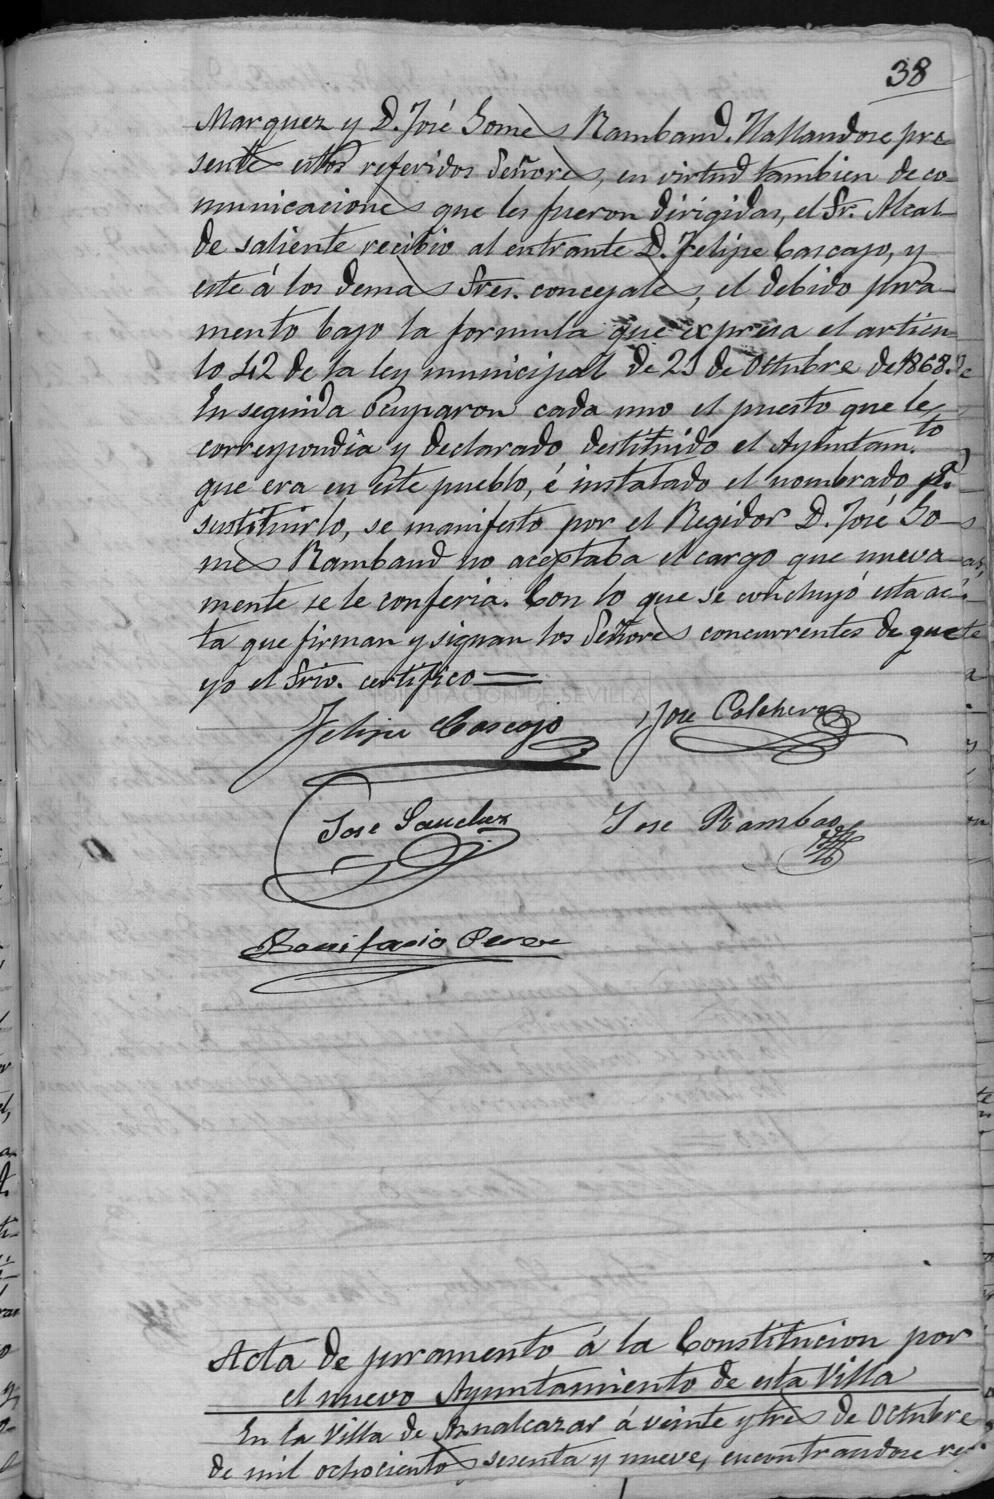 38
Marquez y D. José Gomes Rambaud. Hallandose pre
sentes estos referidos Señores, en virtud tambien de co-
municaciones que les fueron dirigidas, el Sr. Alcal-
de saliente recibio al entrante D. Felipe Cascajo, y
este á los demas Sres. concejales, el debido jura-
mento bajo la formula que expresa el articu-
lo 42 de la ley municipal de 21 de Octubre de 1868.
En seguida ocuparon cada uno el puesto que le
correspondia y declarado destituido el Ayuntam.to
que era en este pueblo, é instalado el nombrado pª.
sustituirlo, se manifesto por el Regidor D. José Go-
mes Rambaud no aceptaba el cargo que nueva-
mente se le conferia. Con lo que se concluyó esta ac-
ta que firman y signan los Señores concurrentes de que
yo el Srio. certifico
ACION DE SEVILLA
Felipe Cascajo José Colchero
Jose Sanchez Jose Rambao
Bonifasio Perez
Acta de juramento á la Constitucion por
el nuevo Ayuntamiento de esta Villa
En la Villa de Aznalcazar á veinte y tres de Octubre
de mil ochocientos sesenta y nueve, encontrandose re-